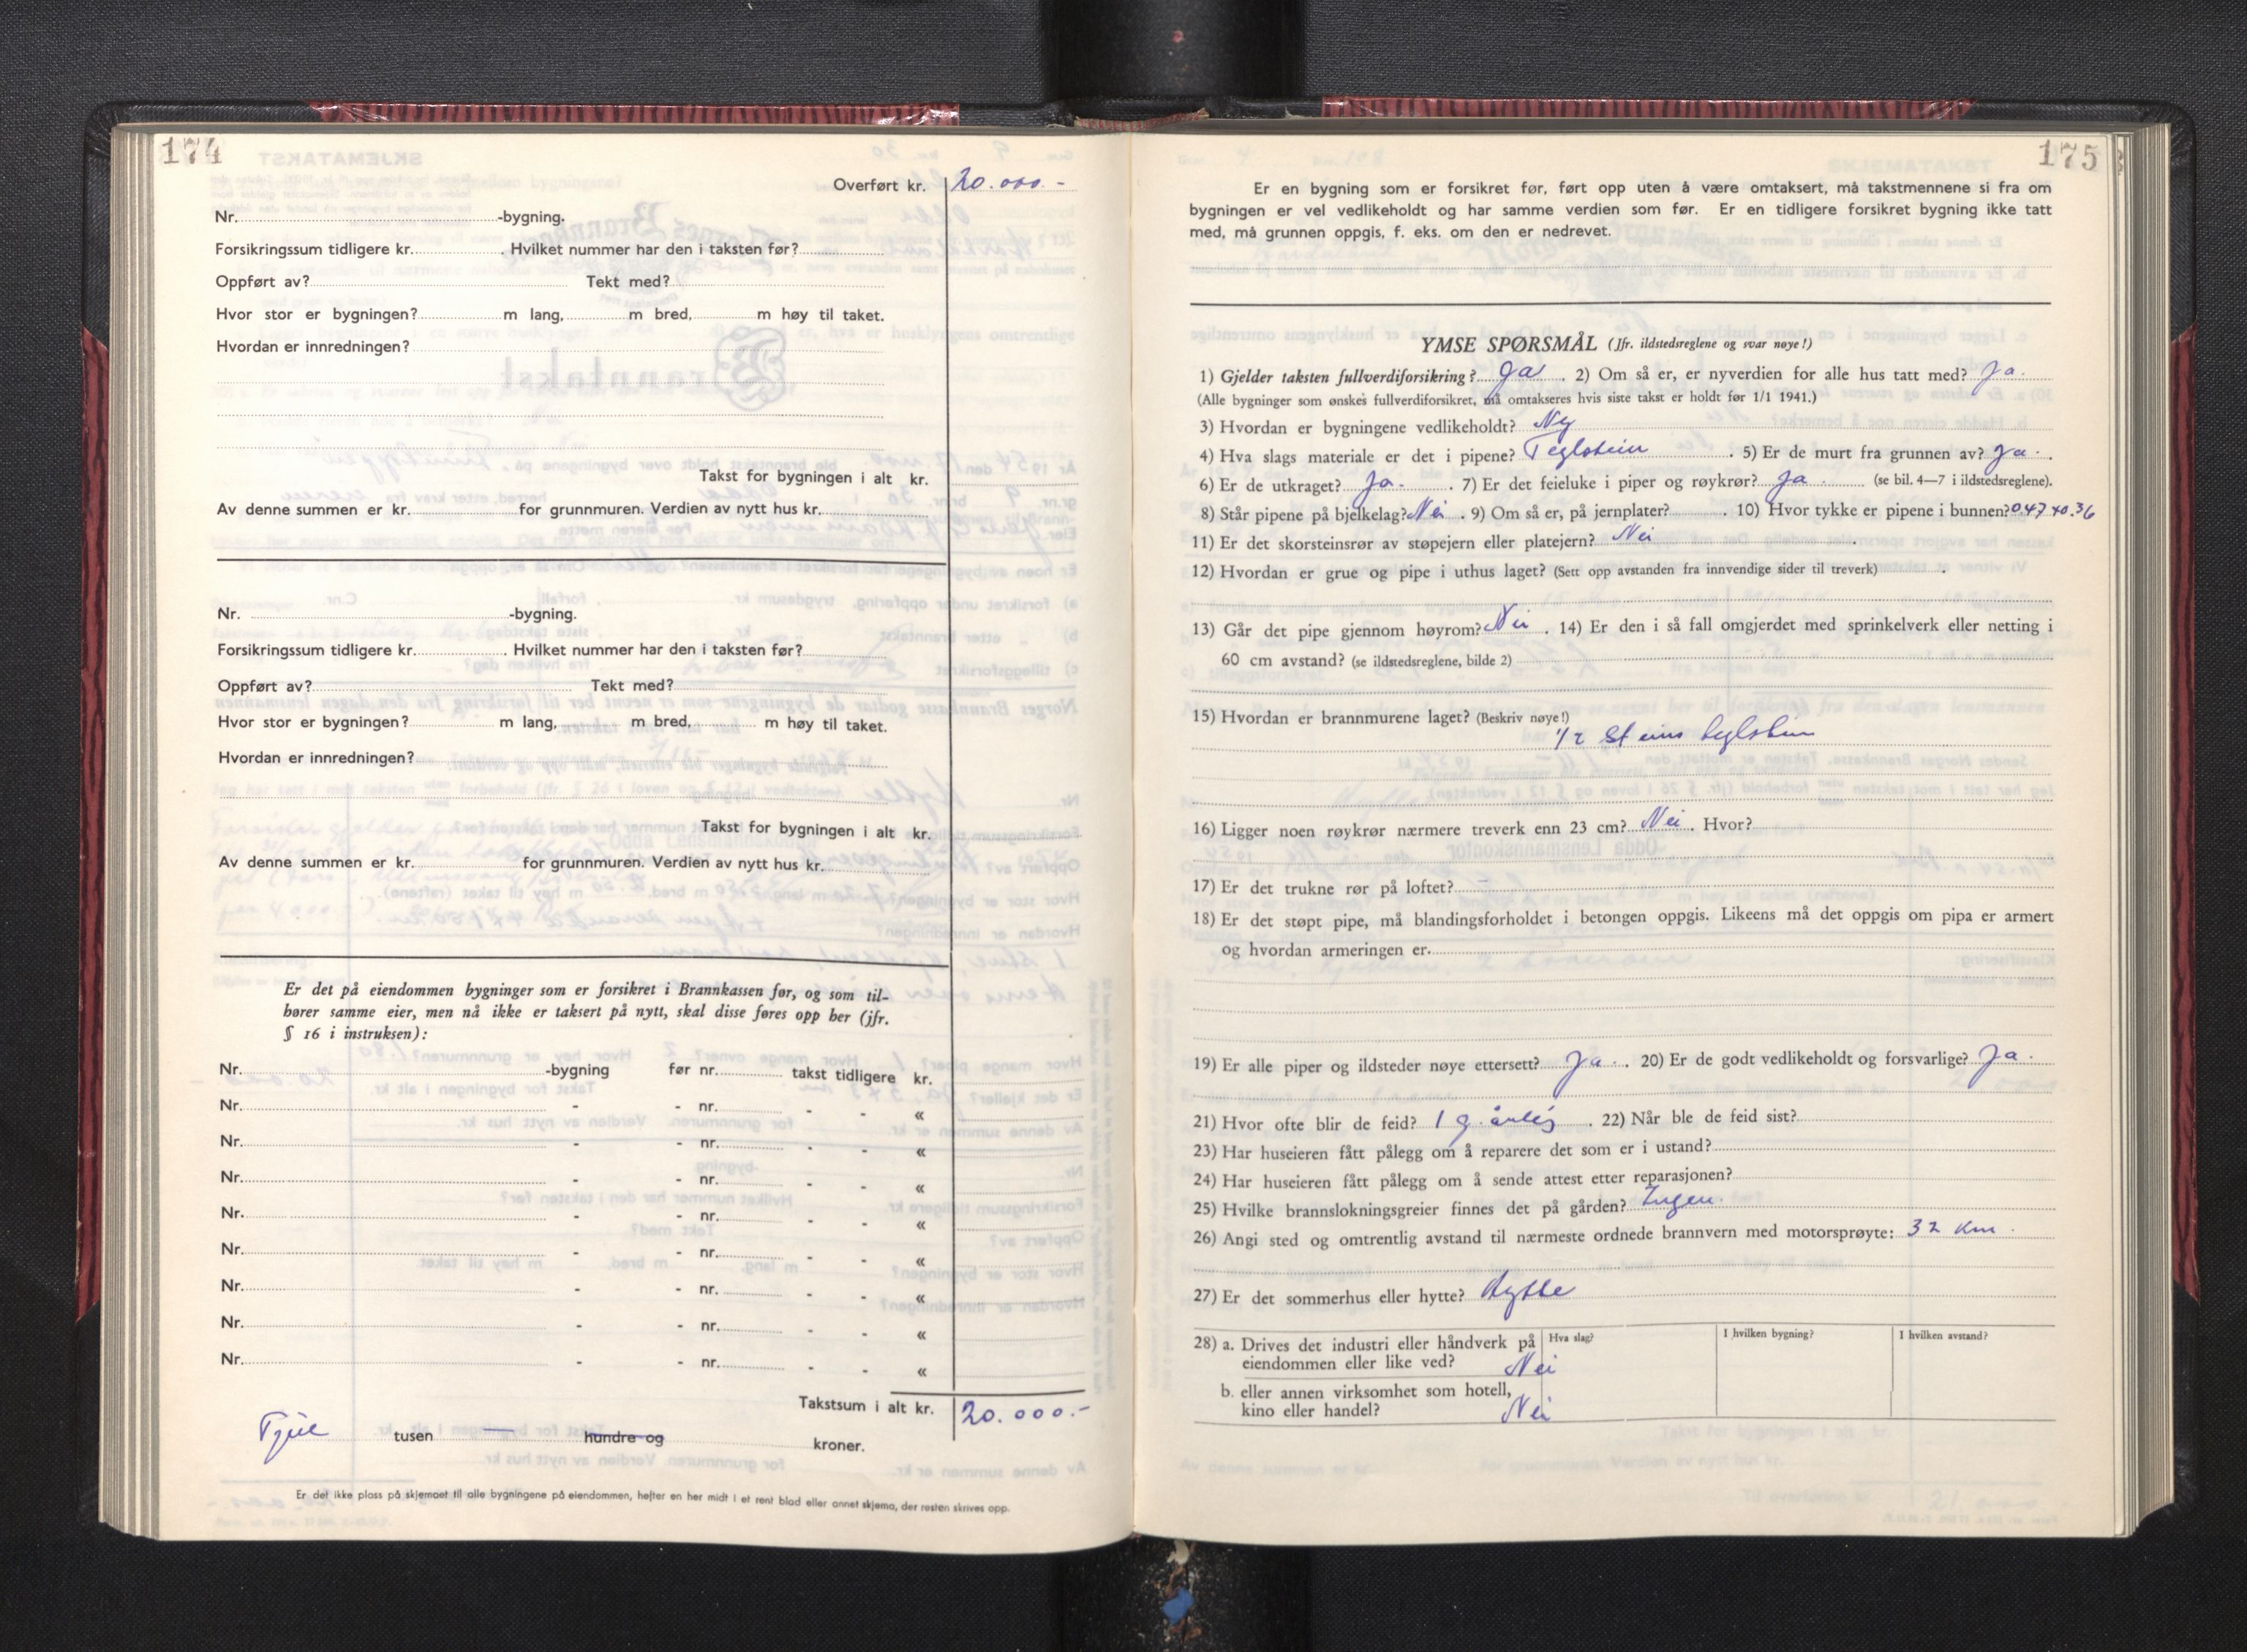 174
Overført kr. 20.000.-
Nr. -bygning.
Forsikringssum tidligere kr. . Hvilket nummer har den i taksten før?
Oppført av? Tekt med?
Hvor stor er bygningen? m lang, m bred, m høy til taket.
Hvordan er innredningen?
Takst for bygningen i alt kr.
Av denne summen er kr. for grunnmuren. Verdien av nytt hus kr.
Nr. -bygning.
Forsikringssum tidligere kr. . Hvilket nummer har den i taksten før?
Oppført av? Tekt med?
Hvor stor er bygningen? m lang, m bred, m høy til taket.
Hvordan er innredningen?
Takst for bygningen i alt kr.
Av denne summen er kr. for grunnmuren. Verdien av nytt hus kr.
Er det på eiendommen bygninger som er forsikret i Brannkassen før, og som til-
hører samme eier, men nå ikke er taksert på nytt, skal disse føres opp her (jfr.
§ 16 i instruksen):
Nr. -bygning før nr. takst tidligere kr.
Nr. - - nr. - - «
Nr. - - nr. - - «
Nr. - - nr. - - «
Nr. - - nr. - - «
Nr. - - nr. - - «
Nr. - - nr. - - «
Nr. - - nr. - - «
Nr. - - nr. - - «
Takstsum i alt kr. 20.000.-
Tjue tusen — hundre og kroner.
Er det ikke plass på skjemaet til alle bygningene på eiendommen, hefter en her midt i et rent blad eller annet skjema, der resten skrives opp.
175
Er en bygning som er forsikret før, ført opp uten å være omtaksert, må takstmennene si fra om
bygningen er vel vedlikeholdt og har samme verdien som før. Er en tidligere forsikret bygning ikke tatt
med, må grunnen oppgis, f. eks. om den er nedrevet.
YMSE SPØRSMÅL (Jfr. ildstedsreglene og svar nøye!)
1) Gjelder taksten fullverdiforsikring? Ja . 2) Om så er, er nyverdien for alle hus tatt med? Ja.
(Alle bygninger som ønskes fullverdiforsikret, må omtakseres hvis siste takst er holdt før 1/1 1941.)
3) Hvordan er bygningene vedlikeholdt? Ny
4) Hva slags materiale er det i pipene? Teglstein . 5) Er de murt fra grunnen av? Ja.
6) Er de utkraget? Ja. . 7) Er det feieluke i piper og røykrør? Ja . (se bil. 4—7 i ildstedsreglene).
8) Står pipene på bjelkelag? Nei . 9) Om så er, på jernplater? . 10) Hvor tykke er pipene i bunnen? 0.47 x 0.36
11) Er det skorsteinsrør av støpejern eller platejern? Nei .
12) Hvordan er grue og pipe i uthus laget? (Sett opp avstanden fra innvendige sider til treverk) .
13) Går det pipe gjennom høyrom? Nei . 14) Er den i så fall omgjerdet med sprinkelverk eller netting i
60 cm avstand? (se ildstedsreglene, bilde 2)
15) Hvordan er brannmurene laget? (Beskriv nøye!)
1/2 steins teglstein
16) Ligger noen røykrør nærmere treverk enn 23 cm? Nei . Hvor?
17) Er det trukne rør på loftet? -
18) Er det støpt pipe, må blandingsforholdet i betongen oppgis. Likeens må det oppgis om pipa er armert
og hvordan armeringen er.
19) Er alle piper og ildsteder nøye ettersett? Ja . 20) Er de godt vedlikeholdt og forsvarlige? Ja .
21) Hvor ofte blir de feid? 1 g. årlig . 22) Når ble de feid sist?
23) Har huseieren fått pålegg om å reparere det som er i ustand?
24) Har huseieren fått pålegg om å sende attest etter reparasjonen?
25) Hvilke brannslokningsgreier finnes det på gården? Ingen.
26) Angi sted og omtrentlig avstand til nærmeste ordnede brannvern med motorsprøyte: 32 km .
27) Er det sommerhus eller hytte? Hytte
28) a. Drives det industri eller håndverk på eiendommen eller like ved? Nei
Hva slag? I hvilken bygning? I hvilken avstand?
b. eller annen virksomhet som hotell,
kino eller handel? Nei